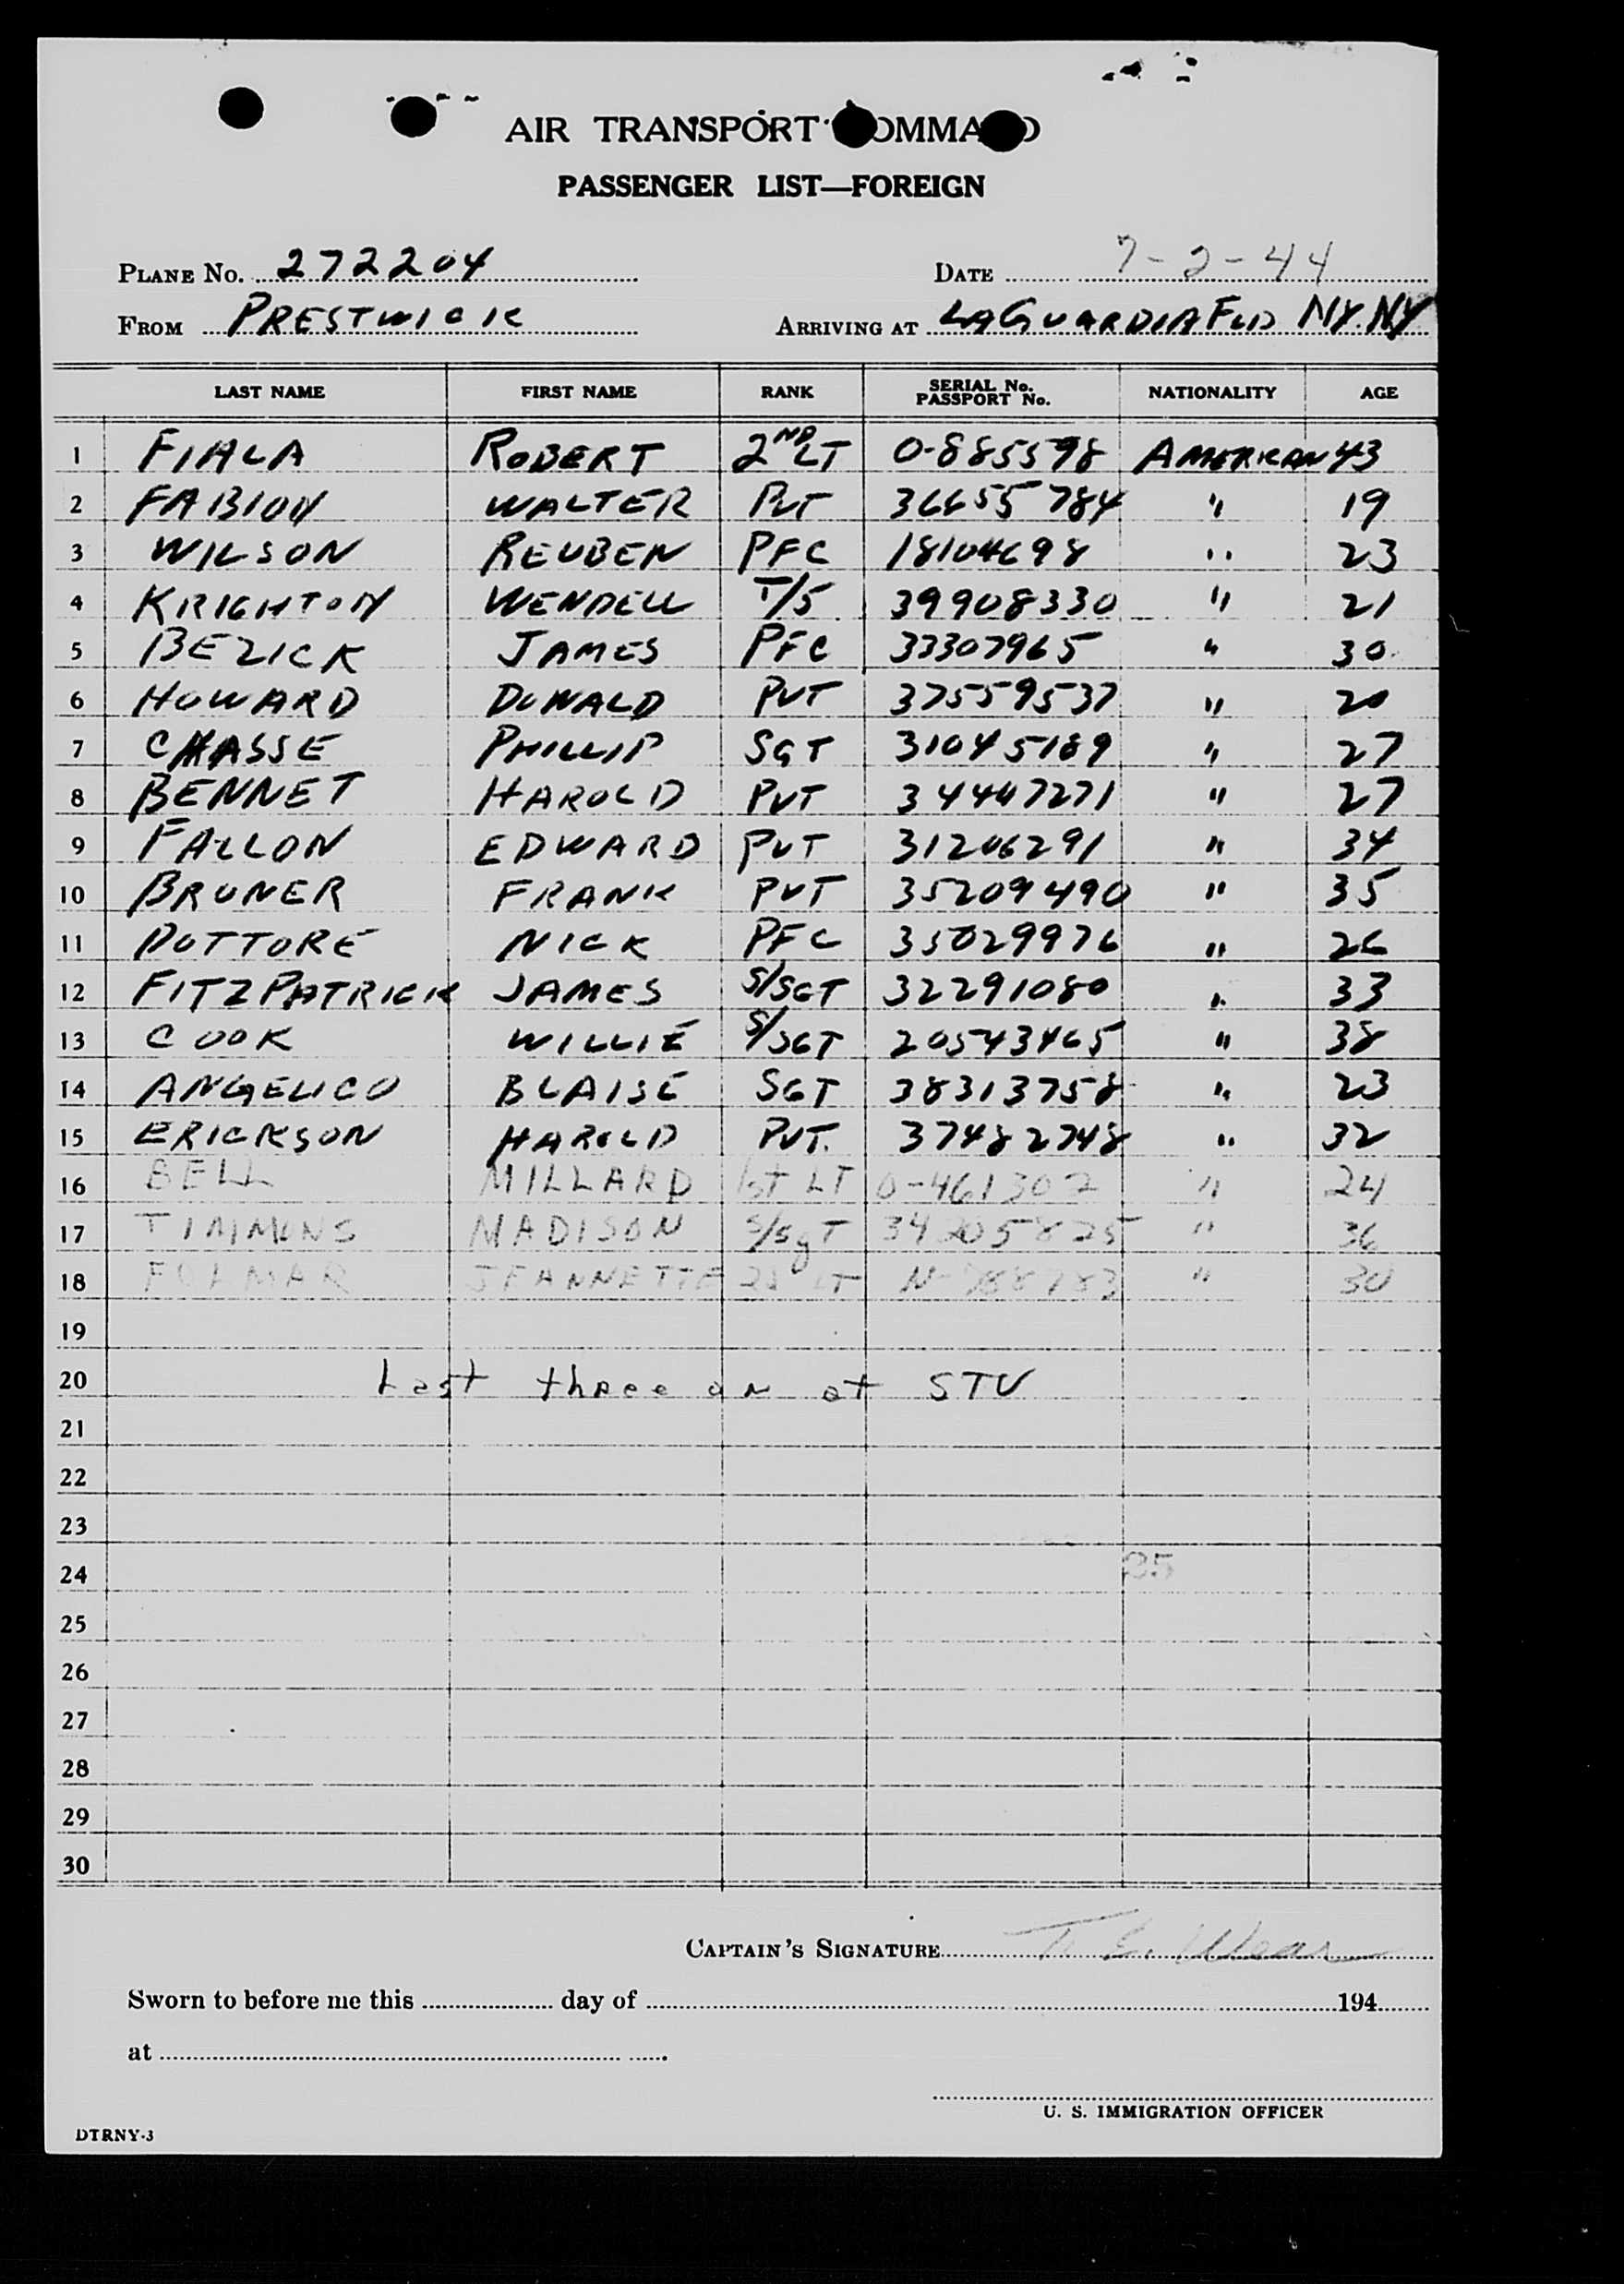 AIR TRANSPORT COMMAND
PASSENGER LIST—FOREIGN
PLANE No. 272204 DATE 7-2-44
FROM PRESTWICK ARRIVING AT LAGUARDIA FLD NY. NY
LAST NAME FIRST NAME RANK SERIAL No. PASSPORT No. NATIONALITY AGE
1 FIALA ROBERT 2ND LT O-885598 AMERICAN 43
2 FABION WALTER PVT 36655784 " 19
3 WILSON REUBEN PFC 18104698 " 23
4 KRIGHTON WENDELL T/5 39908330 " 21
5 BEZICK JAMES PFC 33307965 " 30
6 HOWARD DONALD PVT 37559537 " 20
7 CHASSE PHILLIP SGT 31045189 " 27
8 BENNET HAROLD PVT 34447271 " 27
9 FALLON EDWARD PVT 31206291 " 34
10 BRUNER FRANK PVT 35209490 " 35
11 DOTTORE NICK PFC 35029976 " 26
12 FITZPATRICK JAMES S/SGT 32291080 " 33
13 COOK WILLIE S/SGT 20543465 " 38
14 ANGELICO BLAISE SGT 38313758 " 23
15 ERICKSON HAROLD PVT. 37482748 " 32
16 BELL MILLARD 1st LT O-461302 " 24
17 TIMMONS MADISON S/SgT 34205825 " 36
18 FOLMAR JEANNETTE 2d LT N-788783 " 30
19
20 Last three on at STV
21
22
23
24 25
25
26
27
28
29
30
CAPTAIN'S SIGNATURE T. E. Wear
Sworn to before me this day of 194
at
U. S. IMMIGRATION OFFICER
DTRNY-3